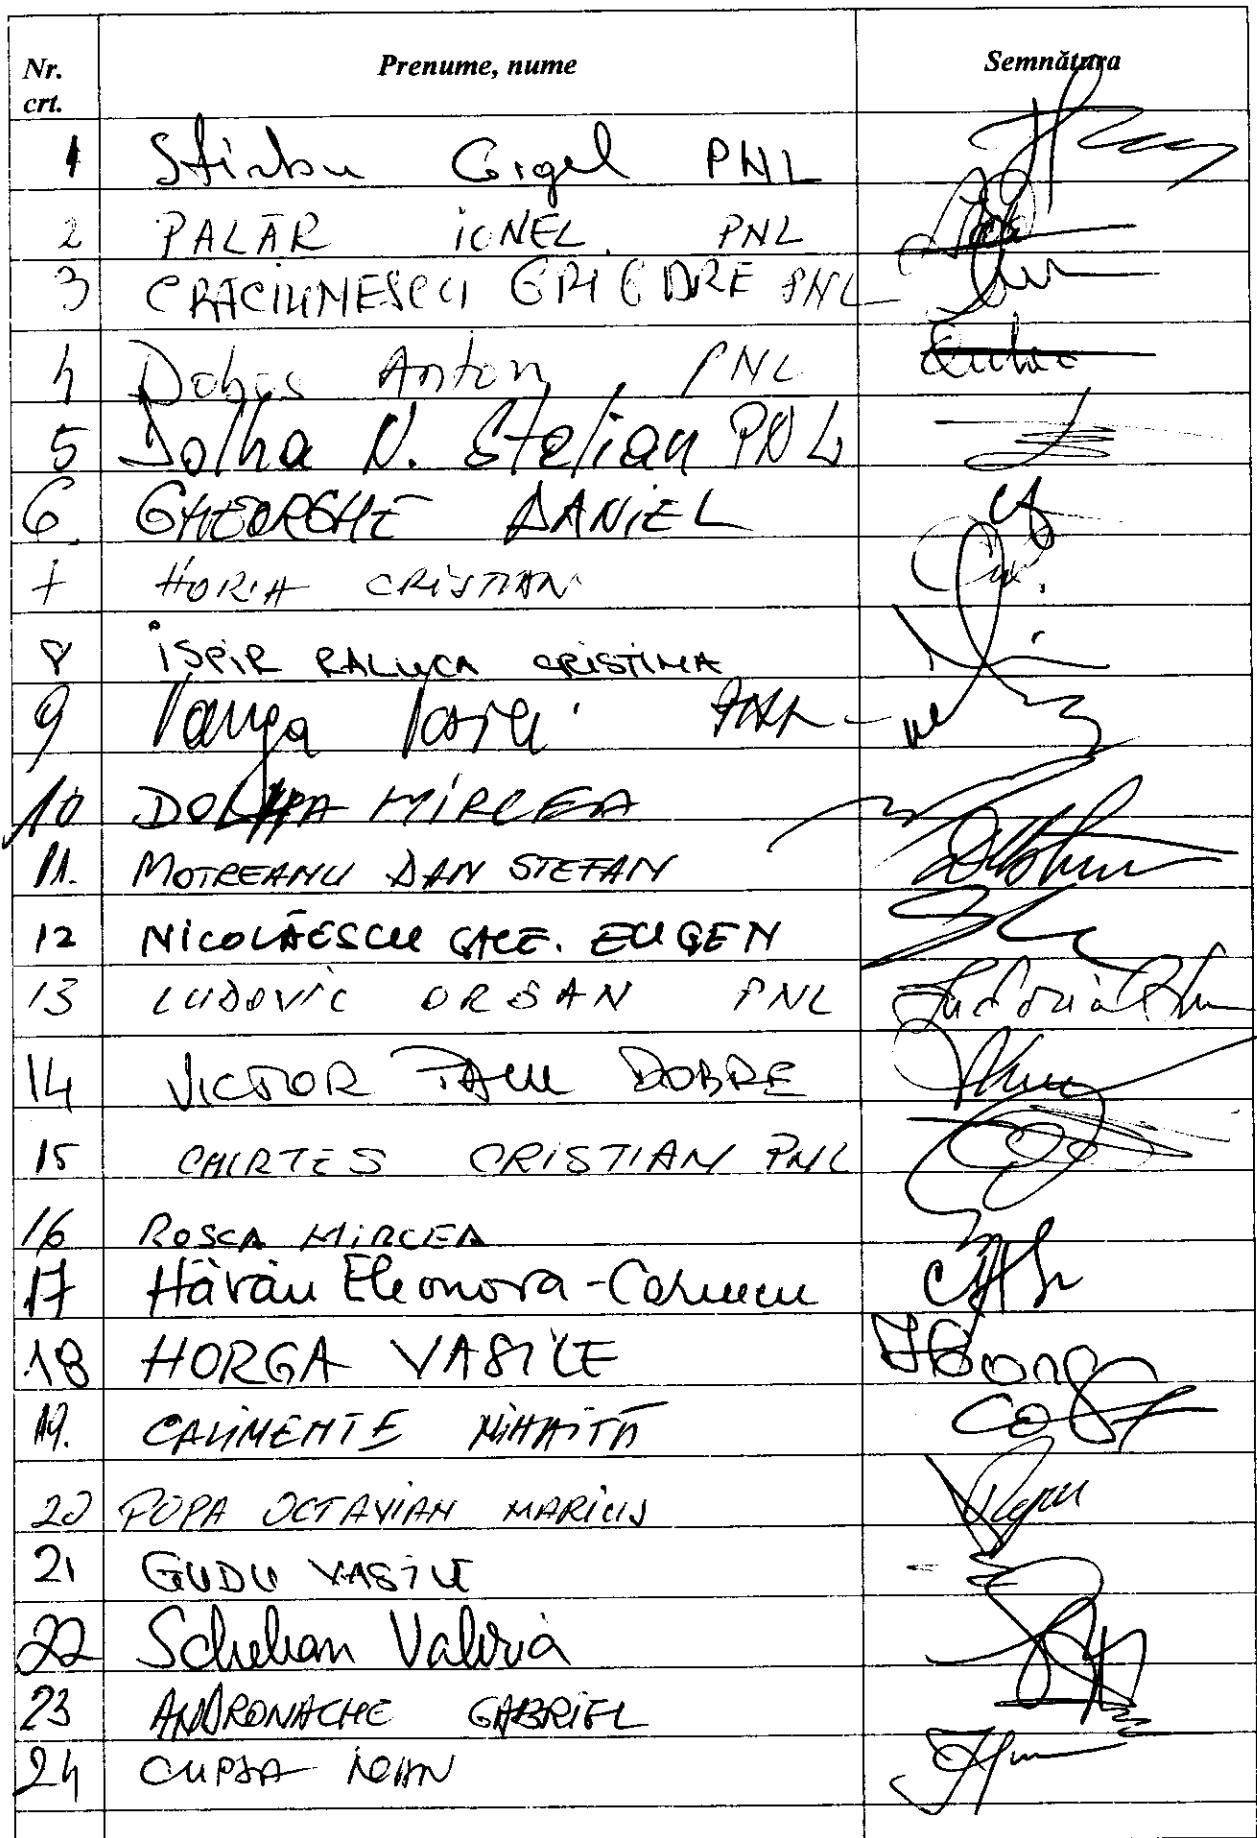 Nr. crt. Prenume, nume Semnătura
1 Stirbu Gigel PNL
2 PALĂR IONEL PNL
3 CRACIUNESCU GRIGORE PNL
4 Dobos Anton PNL
5 Dolha N. Stelian PNL
6. GHEORGHE DANIEL
7 HORIA CRISTIAN
8 ISPIR RALUCA CRISTINA
9 PNL
10 DOLHA MIRCEA
11. MOTREANU DAN STEFAN
12 NICOLĂESCU GHE. EUGEN
13 LUDOVIC ORBAN PNL
14 VICTOR PAUL DOBRE
15 CHIRTES CRISTIAN PNL
16 ROSCA MIRCEA
17 Hărău Eleonora-Carmen
18 HORGA VASILE
19. CALIMENTE MIHĂIȚĂ
20 POPA OCTAVIAN MARIUS
21 GUDU VASILE
22 Schelean Valeria
23 ANDRONACHE GABRIEL
24 CUPSA IOAN